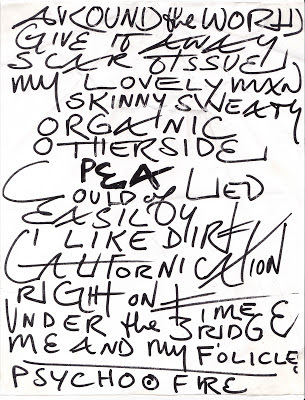 AROUND the WORLD
GIVE IT AWAY
SCAR TISSUE
MY LOVELY MXN
SKINNY SWEATY
ORGANIC
OTHERSIDE
PEA
COULD of LIED
EASILY
I LIKE DIRT
CALIFORNICATION
RIGHT ON TIME
UNDER the BRIDGE
ME AND MY FOLICLE
PSYCHO FIRE